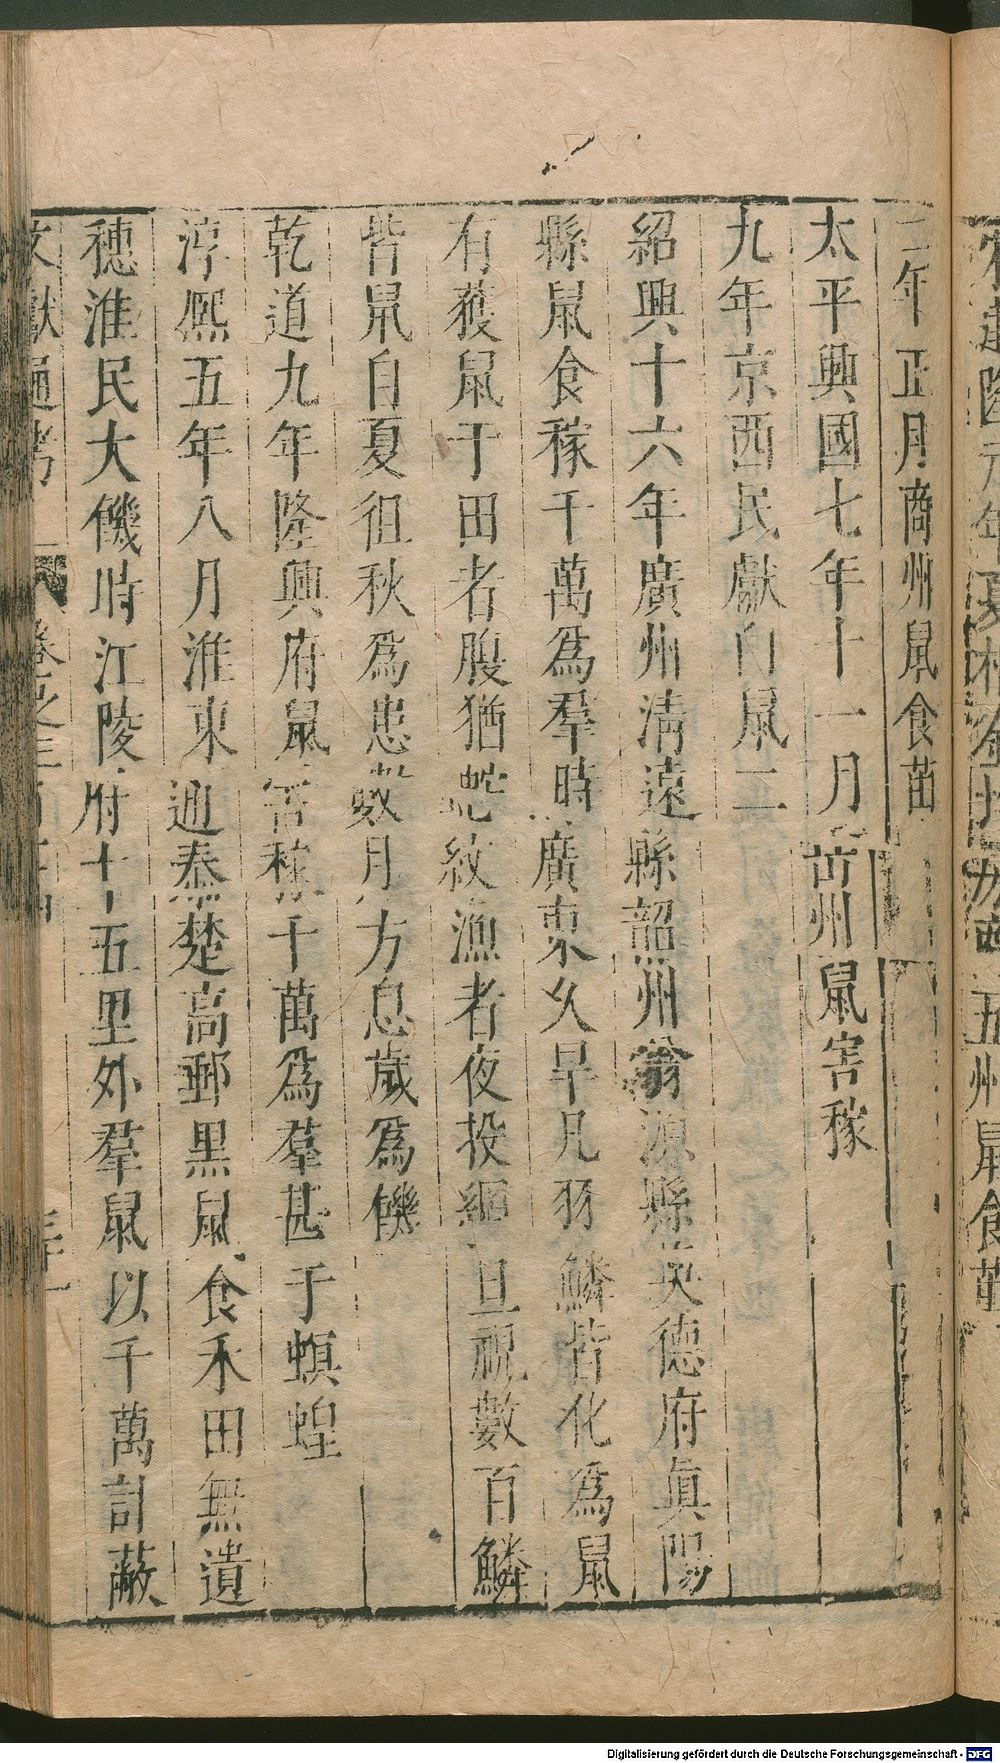 二年正月商州鼠食苗
太平興國七年十一月岢州鼠害稼
九年京西民獻白鼠二
紹興十六年廣州清遠縣韶州翁源縣英德府真陽
縣鼠食稼千萬爲羣時廣東久旱凡羽鱗皆化爲鼠
有獲鼠于田者腹猶蛇紋漁者夜投網旦視數百鱗
皆鼠自夏徂秋爲患數月方息歲爲饑
乾道九年隆興府鼠害稼千萬爲羣甚于螟蝗
淳熙五年八月淮東通泰楚高郵黑鼠食禾田無遺
穗淮民大饑時江陵府十五里外羣鼠以千萬計蔽
文獻通考 卷之三百
Digitalisierung gefördert durch die Deutsche Forschungsgemeinschaft - DFG